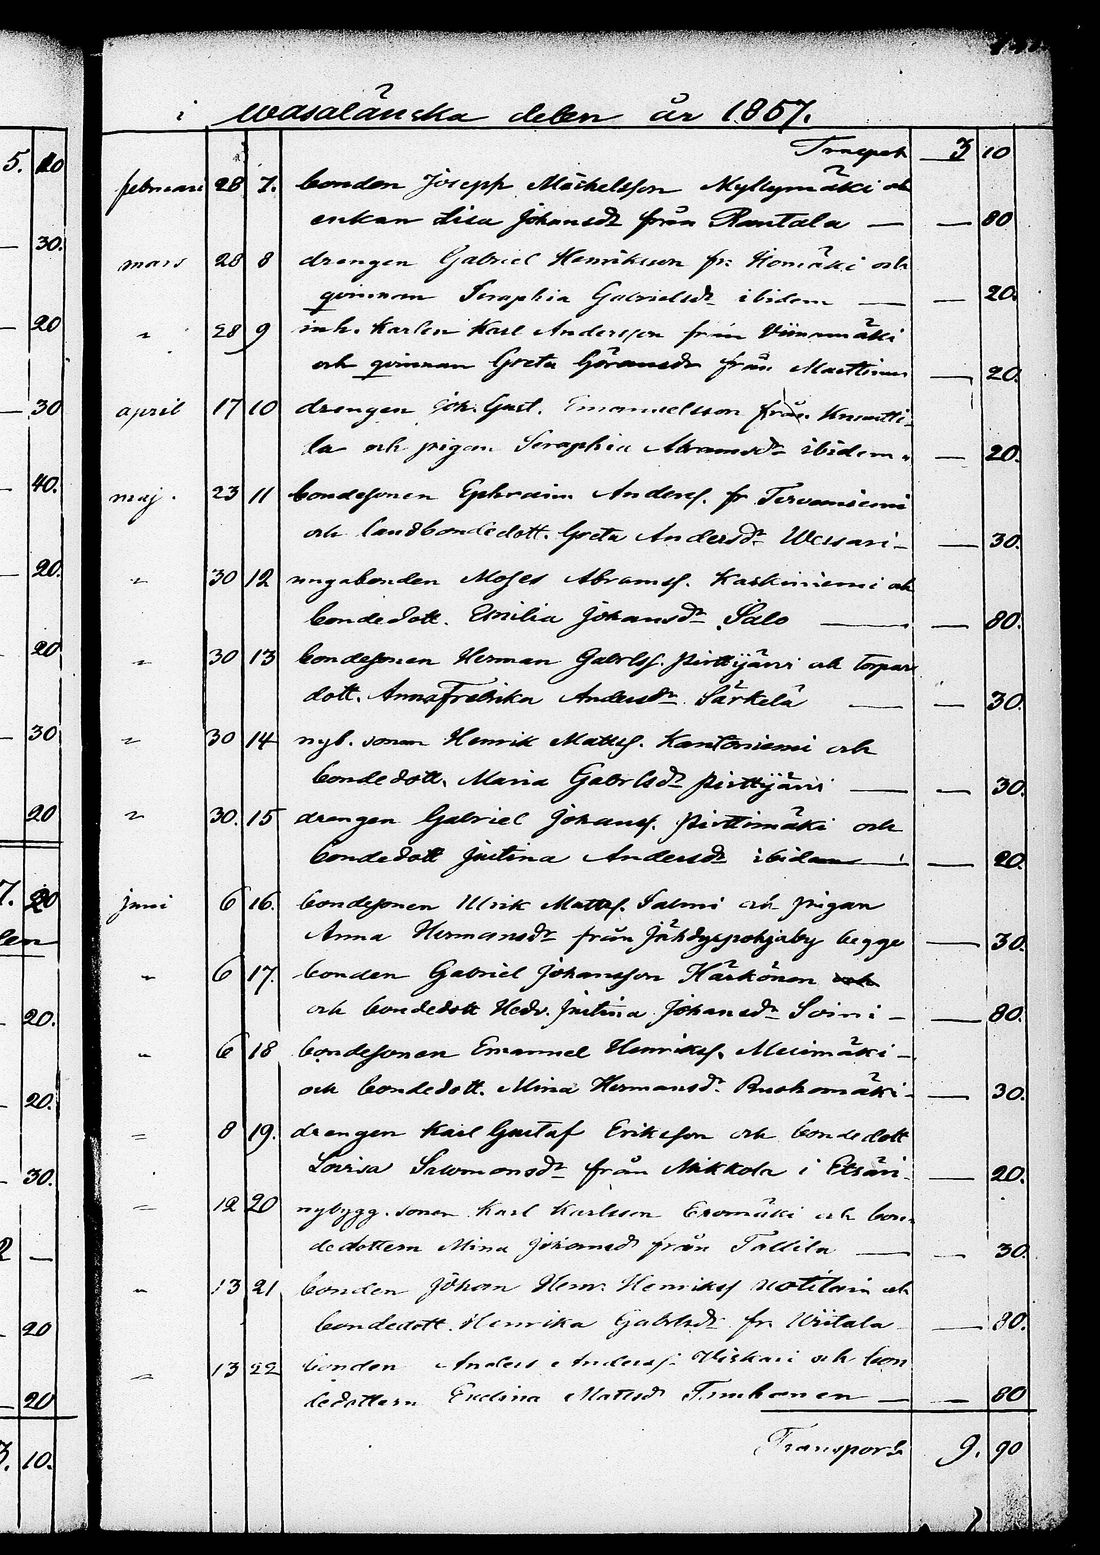 5. 10
30.
20
30
40.
20.
20
30
20
7. 20
20.
20.
30.
2 —
20
20
3. 10.
i wasalänska delen år 1857.
Transport 3 10
februari 28 7. bonden Joseph Michelsson Myllymäki och
enkan Lisa Johansdr från Rantala — — 80
mars 28 8 drengen Gabriel Henriksson fr. Homäki och
qvinnan Seraphia Gabrielsdr ibidem — — 20.
" 28 9 inh. Karlen Karl Andersson från Viinamäki
och qvinnan Greta Göransdr från — 20.
april 17 10 drengen Joh. Gust. Emanuelsson från Knuutti-
la och pigan Seraphia Abramsdr ibidem — 20.
maj. 23 11 bondesonen Ephraim Anderss. fr Tervaniemi
och landbondedott. Greta Andersdr Wessari — — 30.
" 30 12 ungabonden Moses Abramss. Kaskiniemi och
bondedott. Emilia Johansdr Salo — — 80.
" 30 13 bondesonen Herman Gabrlss. Pirttijärvi och torpar
dott. Anna Fredrika Andersdr Särkelä — — 30.
" 30 14 nyb. sonen Henrik Matts. Kantoniemi och
bondedott. Maria Gabrlsdr Pirttijärvi — — 30.
" 30. 15 drengen Gabriel Johanss. Pirttimäki och
bondedott Justina Andersdr ibidem — — 20.
juni 6 16. bondesonen Ulrik Mattss. Salmi och pigan
Anna Hermansdr från Jähdyspohjaby begge — 30.
" 6 17. bonden Gabriel Johansson Härkönen och
och bondedott Hedv. Justina Johansdr Soini — — 80.
" 6 18 bondesonen Emanuel Henrikss. Mesimäki —
och bondedott. Mina Hermansdr Ruohomäki — — 30.
" 8 19. drengen Karl Gustaf Eriksson och bondedott
Lovisa Salomonsdr från Mikkola i Etsäri — — 20.
" 12 20 nybygg. sonen Karl Karlsson Eromäki och bon-
dedottern Mina Johansdr från Tallila — — 30.
" 13 21 bonden Johan Henr. Henrikss och
bondedott. Henrika Gabrlsdr fr. Wiitala — 80.
" 13 22 bonden Anders Anderss. Viskari och bon
dedottern Eudina Mattsdr Timhonen — — 80
Transport 9. 90